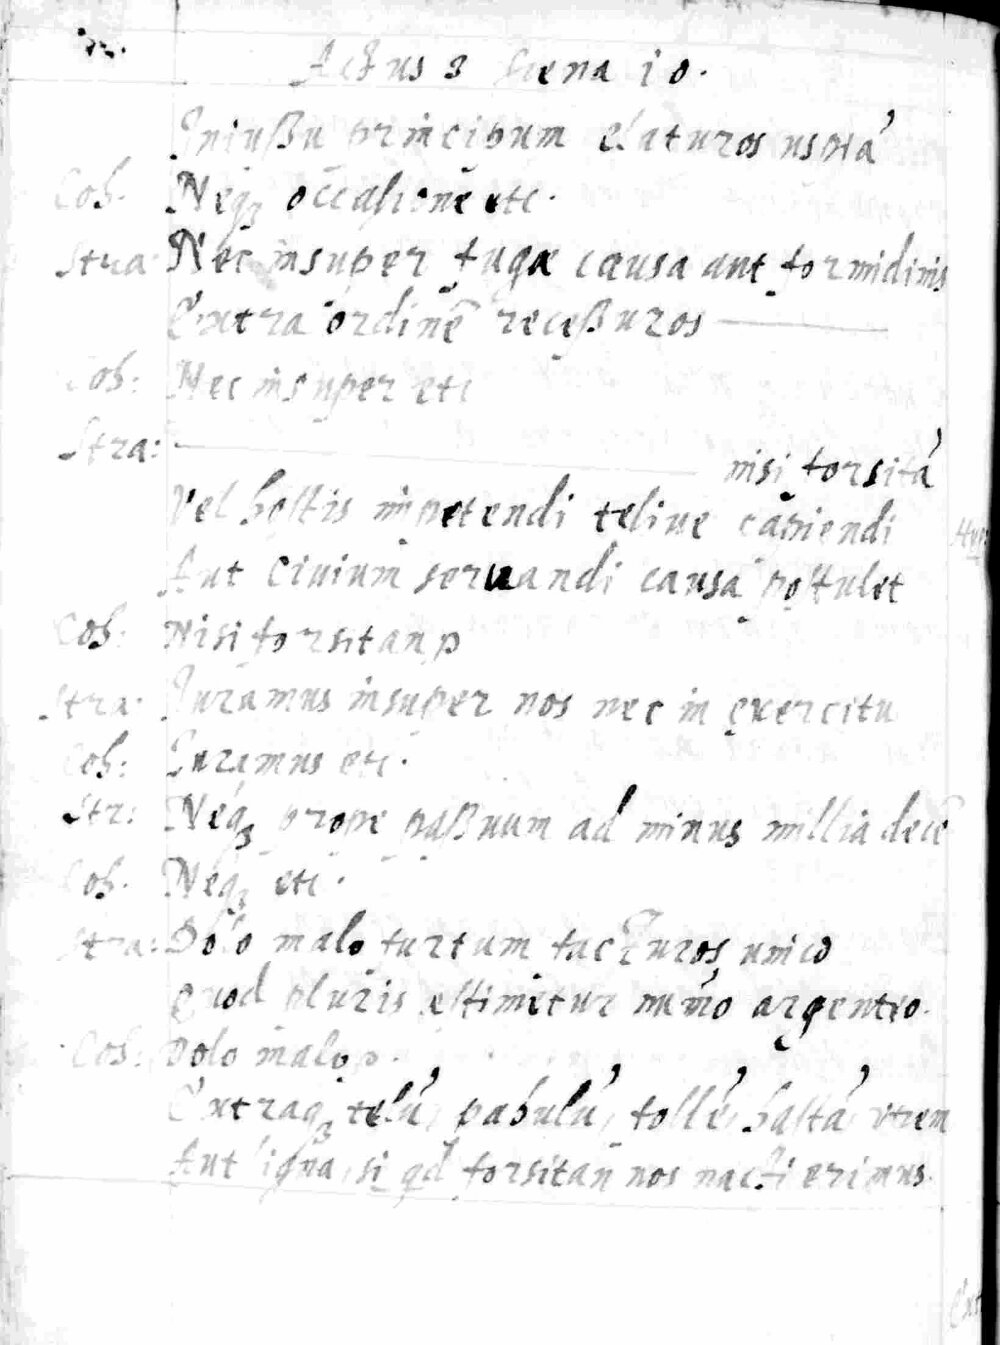 Actus 3 scena 10.
Iniußu principum elaturos usquá
Coh. Neqꝫ occasione etc.
Stra: Nec insuper fugæ causa aut formidinis
Extra ordinē receßuros
Coh: Nec insuper etc
Stra: nisi forsitá
Vel hostis impetendi teliue capiendi
Aut ciuium seruandi causa postulet
Coh: Nisi forsitan p
Stra: Iuramus insuper nos nec in exercitu
Coh: Iuramus etc.
Str: Neqꝫ prope paßuum ad minus millia decē
Coh. Neqꝫ etc.
Stra: Dolo malo furtum facturos unico
Quod pluris estimetur argenteo.
Coh: Dolo malo p.
Extraqꝫ telú, pabulú, follé, hastá, utrem
Aut ligna, si qd forsitan nos nacti erimus.